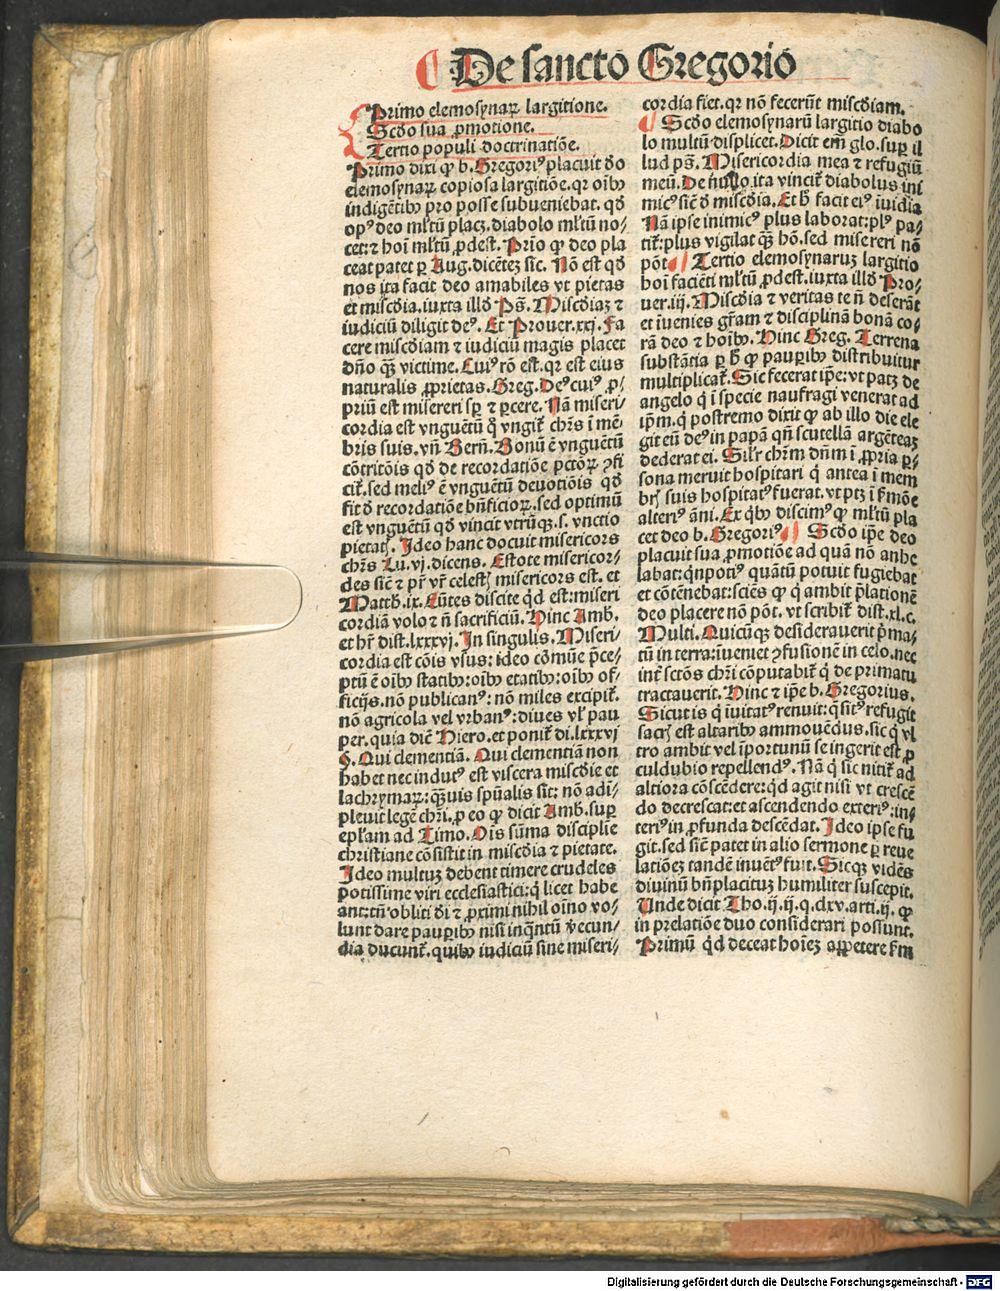 De sancto Gregorio
Primo elemosynaꝝ largitione.
Scd̓o sua ꝓmotione.
Tertio populi doctrinatiõe.
Primo dixi ꝙ b. Gregoriꝰ placuit d̓o
elemosynaꝝ copiosa largitiõe. qꝛ oĩbꝰ
indigẽtibꝰ pro posse subueniebat. qd̓
opꝰ deo ml̓tũ placꝫ. diabolo ml̓tũ no⸗
cet: ⁊ hoĩ ml̓tũ ꝓdest. Prĩo ꝙ deo pla
ceat patet ꝑ Aug. dicẽteꝫ sic. Nõ est qd̓
nos ita facit deo amabiles vt pietas
et miscd̓ia. iuxta illd̓ Ps̃. Miscd̓iaꝫ ⁊
iudiciũ diligit deꝰ. Et Prouer. xxj. Fa
cere miscd̓iam ⁊ iudiciũ magis placet
dño q̃ꝫ victime. Cuiꝰ rõ est. qꝛ est eius
naturalis ꝓprietas. Greg. Deꝰ cuiꝰ ꝓ⸗
priũ est misereri sꝑ ⁊ ꝑcere. Nã miseri⸗
cordia est vnguẽtũ q̊ vngit̃ chr̃s ĩ mẽ
bris suis. vñ Berñ. Bonũ ẽ vnguẽtũ
cõtritõis qd̓ de recordatiõe pctõꝝ ꝯfi
cit̃. sed meliꝰ ẽ vnguẽtũ deuotiõis qd̓
fit d̓ recordatiõe bñficioꝝ. sed optimũ
est vnguẽtũ qd̓ vincit vtrũqꝫ. s. vnctio
pietatꝭ. Ideo hanc docuit misericors
chr̃s Lu. vj. dicens. Estote misericor⸗
des sicẽ ⁊ pr̃ vr̃ celestꝭ misericors est. et
Matth. ix. Eũtes discite qd̓ est: miseri
cordiã volo ⁊ ñ sacrificiũ. Hinc Amb.
et hr̃ dist. lxxxvj. In singulis. Miseri⸗
cordia est cõis vsus: ideo cõmũe p̃ce⸗
ptũ ẽ oĩbꝰ statibꝰ: oĩbꝰ etatibꝰ: oĩbꝰ of⸗
ficijs. nõ publicanꝰ: nõ miles excipit̃.
nõ agricola vel vrbanꝰ: diues vl̓ pau
per. quia dicẽ Hiero. et ponit̃ di. lxxxvj
§. Qui clementiã. Qui clementiã non
habet nec indutꝰ est viscera miscd̓ie et
lachrymaꝝ: q̃ꝫuis spũalis sit: nõ adĩ⸗
pleuit legẽ chr̃i. ꝓ eo ꝙ dicit Amb. suꝑ
epl̓am ad Timo. Ois sũma discipline
christiane cõsistit in miscd̓ia ⁊ pietate.
Ideo multuꝫ debent timere crudeles
potissime viri ecclesiastici: q̓ licet habe
ant: tñ obliti d̓i ⁊ ꝓximi nihil oĩno vo⸗
lunt dare pauꝑibꝰ nisi inq̃ntũ verecun⸗
dia ducunt̃. quibꝰ iudiciũ sine miseri⸗
cordia fiet. qꝛ nõ fecerũt miscd̓iam.
Scd̓o elemosynarũ largitio diabo
lo multũ displicet. Dicit em̃ glo. suꝑ il
lud ps̃. Misericordia mea ⁊ refugiũ
meũ. De nullo ita vincit̃ diabolus ini
micꝰ sicẽ d̓ miscd̓ia. Et h̓ facit eiꝰ ĩuidia
Nã ipse inimicꝰ plus laborat: plꝰ pa⸗
tit̃: plus vigilat q̃ꝫ hõ. sed misereri nõ
põt. Tertio elemosynaruꝫ largitio
hoĩ faciẽti ml̓tũ ꝓdest. iuxta illd̓ Pro⸗
uer. iij. Miscd̓ia ⁊ veritas te ñ deserãt
et ĩuenies gr̃am ⁊ disciplinã bonã co⸗
rã deo ⁊ hoĩbꝰ. Hinc Greg. Terrena
substãtia ꝑ h̓ ꝙ pauꝑibꝰ distribuitur
multiplicat̃. Sic fecerat ip̃e: vt patꝫ de
angelo q̓ ĩ specie naufragi venerat ad
ip̃m. q̓ postremo dixit ꝙ ab illo die ele
git eũ deꝰ in papã qñ scutellã argẽteaꝫ
dederat ei. Sil̓r chr̃m dñm ĩ ꝓpria ꝑ⸗
sona meruit hospitari q̓ antea ĩ mem
brꝭ suis hospitatꝰ fuerat. vt ptꝫ ĩ ẜmõe
alteriꝰ ãni. Ex q̓bꝰ discimꝰ ꝙ ml̓tũ pla
cet deo b. Gregoriꝰ. Scd̓o ip̃e deo
placuit sua ꝓmotiõe ad quã nõ anhe
labat: q̓npotiꝰ quãtũ potuit fugiebat
et cõtẽnebat: sciẽs ꝙ q̓ ambit p̃lationẽ
deo placere nõ põt. vt scribit̃ dist. xl. c.
Multi. Quicũqꝫ desiderauerit p̃ma⸗
tũ in terra: ĩueniet ꝯfusionẽ in celo. nec
int̃ sctõs chr̃i cõputabit̃ q̓ de primatu
tractauerit. Hinc ⁊ ip̃e b. Gregorius.
Sicut is q̓ ĩuitatꝰ renuit: q̓sitꝰ refugit
sacrꝭ est altaribꝰ ammouẽdus. sic q̓ vl
tro ambit vel ĩportunũ se ingerit est ꝓ
culdubio repellendꝰ. Nã q̓ sic nitit̃ ad
altiora cõscẽdere: qd̓ agit nisi vt crescẽ
do decrescat: et ascendendo exteriꝰ: in⸗
teriꝰ in ꝓfunda descẽdat. Ideo ipse fu
git. sed sicẽ patet in alio sermone ꝑ reue
latiõeꝫ tandẽ inuẽtꝰ fuit. Sicqꝫ vidẽs
diuinũ bñplacituꝫ humiliter suscepit.
Unde dicit Tho. ij. ij. q. clxxxv. arti. ij. ꝙ
in prelatiõe duo considerari possunt.
Primũ qd̓ deceat hoĩeꝫ appetere ẜm
Digitalisierung gefördert durch die Deutsche Forschungsgemeinschaft - DFG